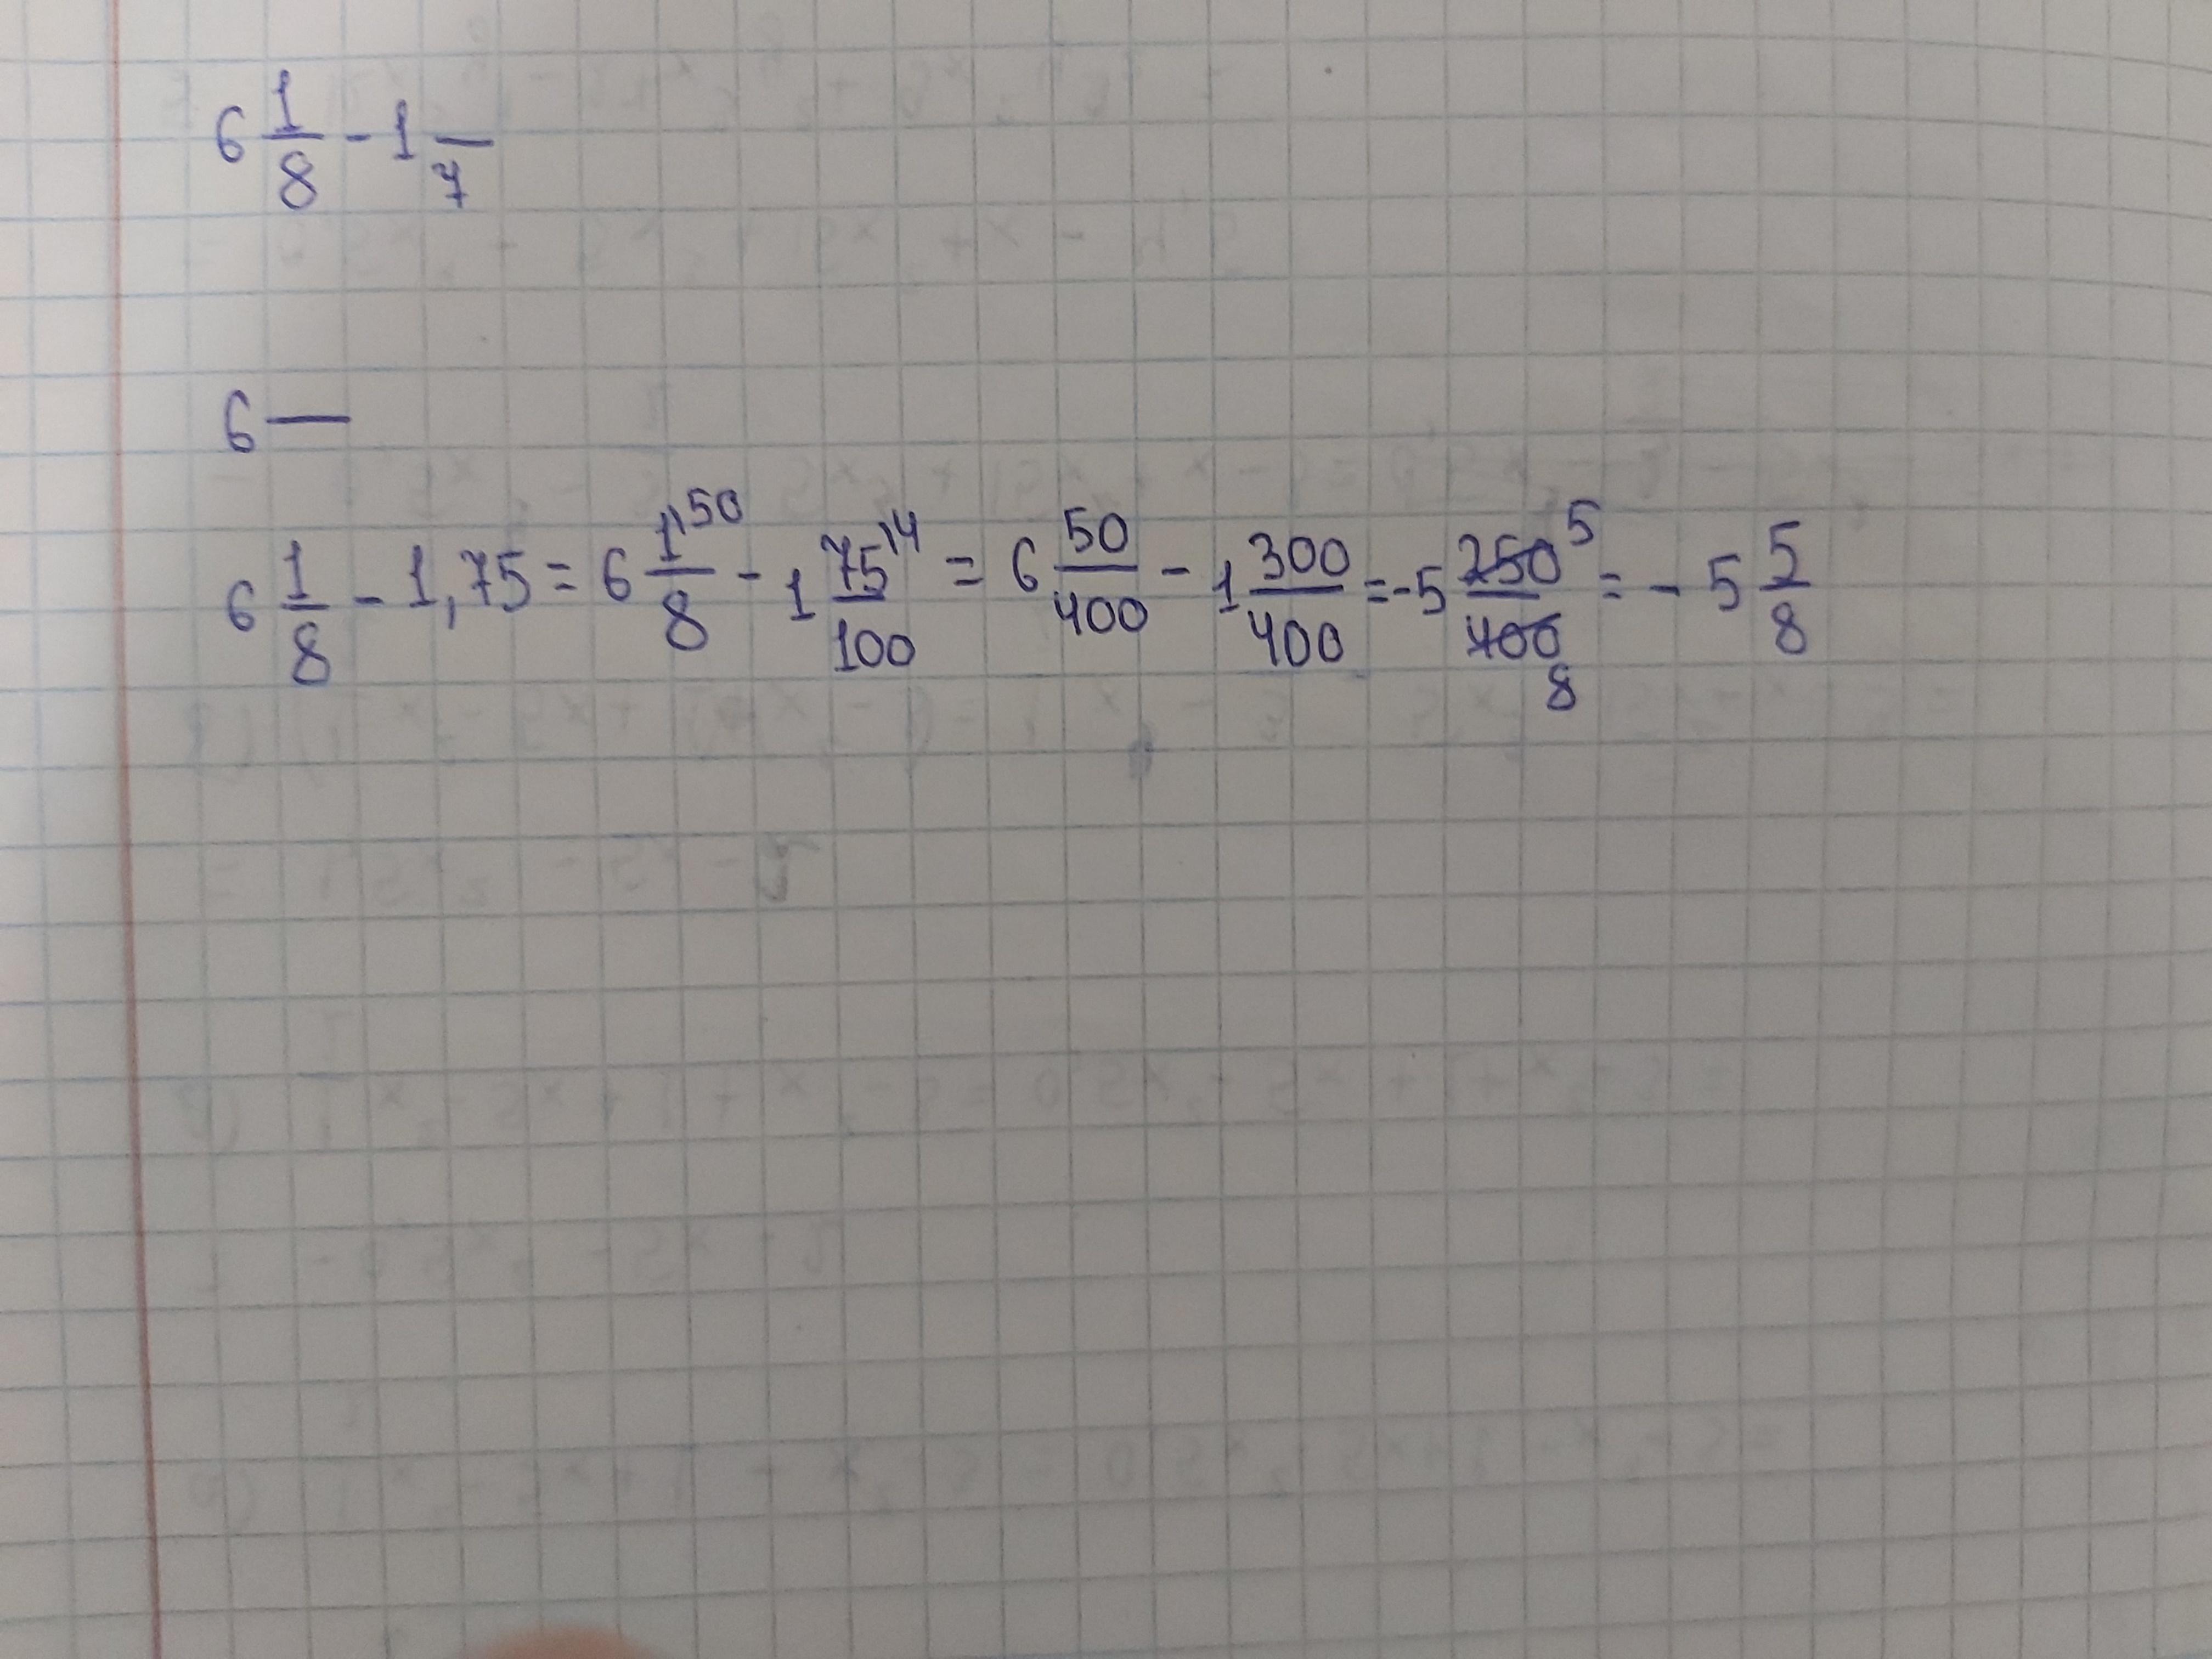 6 1/8 - 1 —/7
6 —
6 1/8 - 1,75 = 6 1^{\50}/8 - 1 75^{\4}/100 = 6 50/400 - 1 300/400 = -5 250^{5}/400_{8} = - 5 5/8